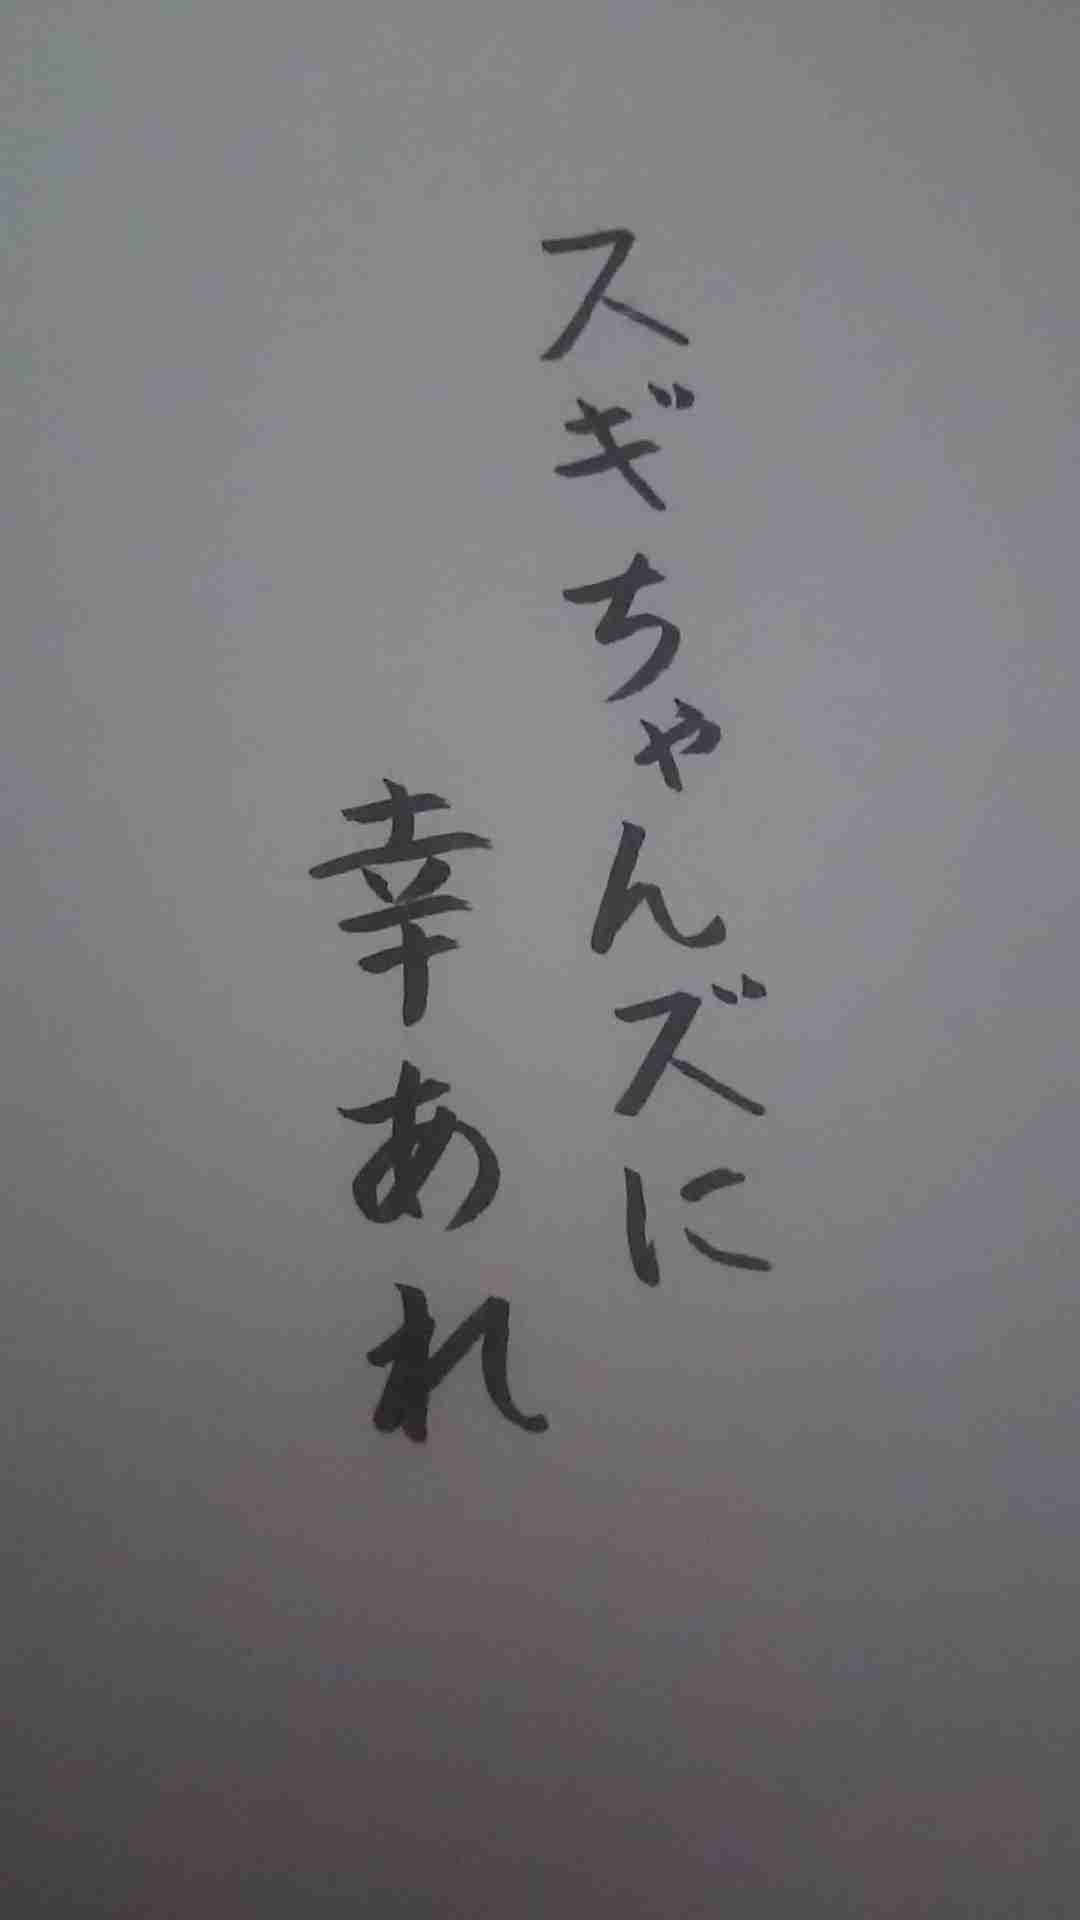 スギちゃんズに
幸あれ